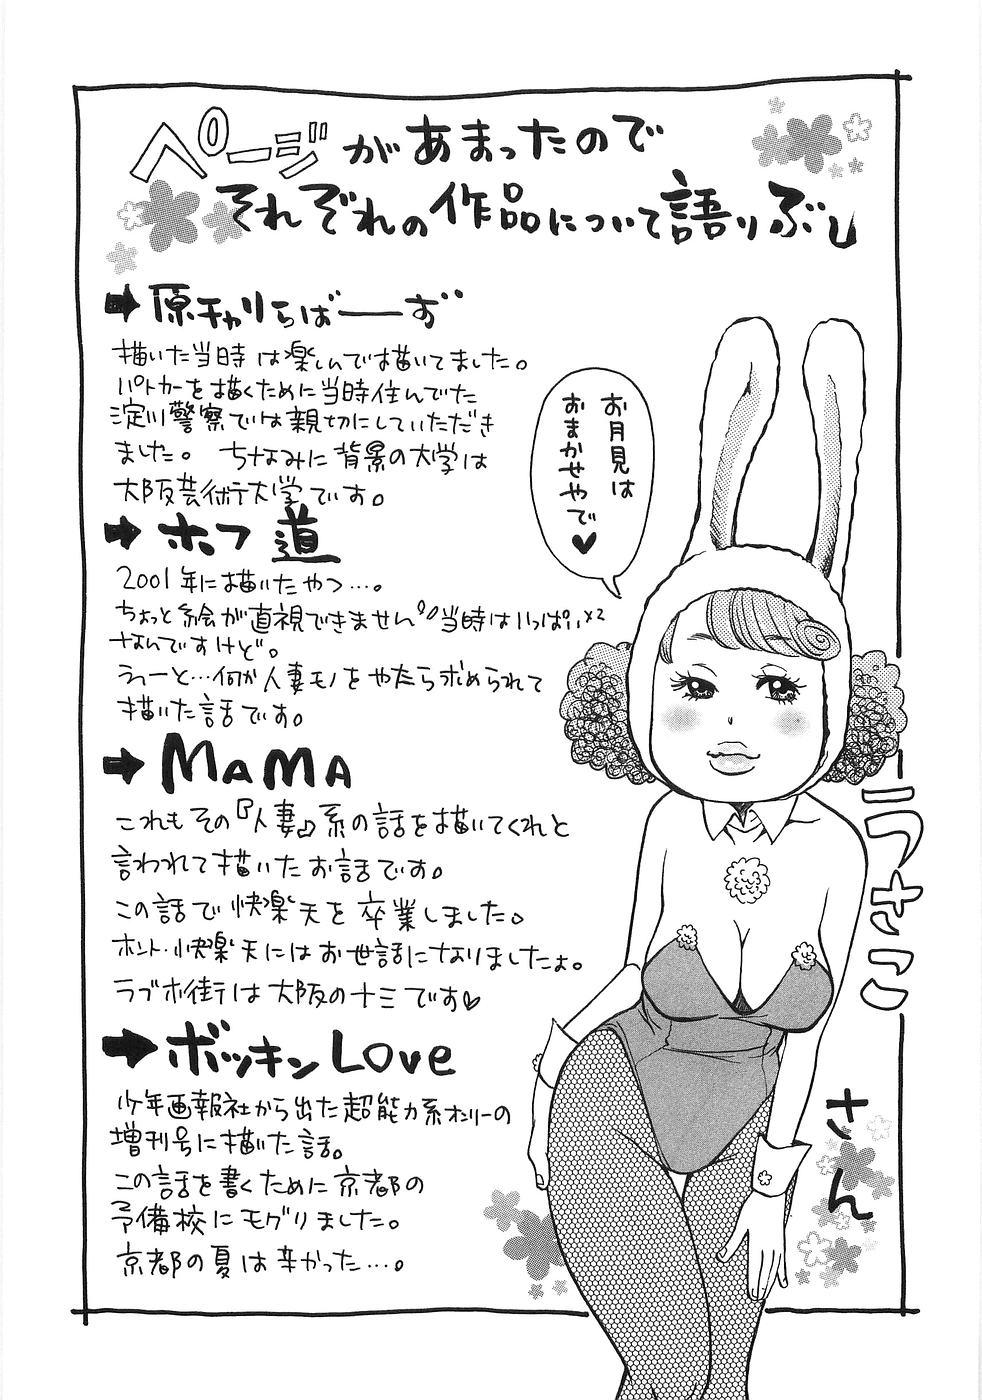 ページがあまったので
それぞれの作品について語りぶし
➡原チャリらばーーず
描いた当時は楽しんで描いてました。
パトカーを描くために当時住んでた
淀川警察では親切にしていただき
ました。 ちなみに背景の大学は
大阪芸術大学です。
➡ホフ道
2001年に描いたやつ…。
ちょっと絵が直視できません 当時はいっぱい×2
なんですけど。
うーんと…何か人妻モノをやたら求められて
描いた話です。
➡MAMA
これもその『人妻』系の話を描いてくれと
言われて描いたお話です。
この話で快楽天を卒業しました。
ホント快楽天にはお世話になりましたよ。
ラブホ街は大阪の十三です♡
➡ボッキンLove
少年画報社から出た超能力系オンリーの
増刊号に描いた話。
この話を書くために京都の
予備校にモグリました。
京都の夏は辛かった…。
お月見は
おまかせやで♥
うさこ
さん